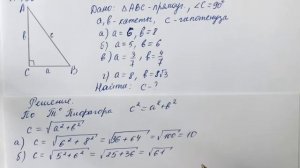 A
в
c
C a B
Дано: △ABC - прямоуг., ∠C = 90°
a, в - катеты, c - гипотенуза
а) a = 6, в = 8
б) a = 5, в = 6
в) a = 3/7, в = 4/7
г) a = 8, в = 8√3
Найти: c - ?
Решение.
По т. Пифагора c² = a² + в²
c = √a² + в²
а) c = √6² + 8² = √36 + 64 = √100 = 10
б) c = √5² + 6² = √25 + 36 = √61